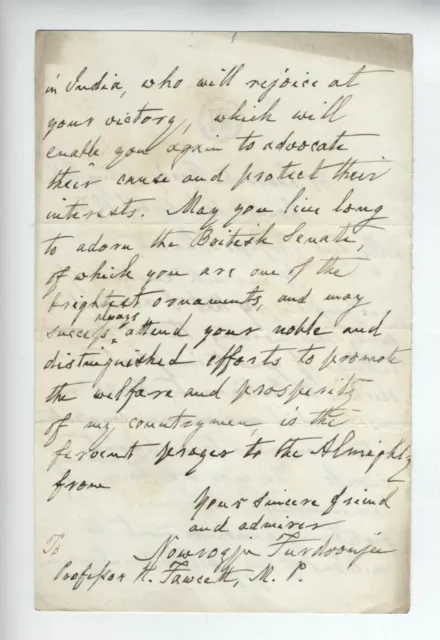 in India, who will rejoice at
your victory, which will
enable you again to advocate
their cause and protect their
interests. May you live long
to adorn the British Senate,
of which you are one of the
brightest ornaments, and may
success always attend your noble and
distinguished efforts to promote
the welfare and prosperity
of my countrymen, is the
fervent prayer to the Almighty
from
Your sincere friend
and admirer
Nowrozjee Furdoonjee
To
Professor H. Fawcett, M. P.